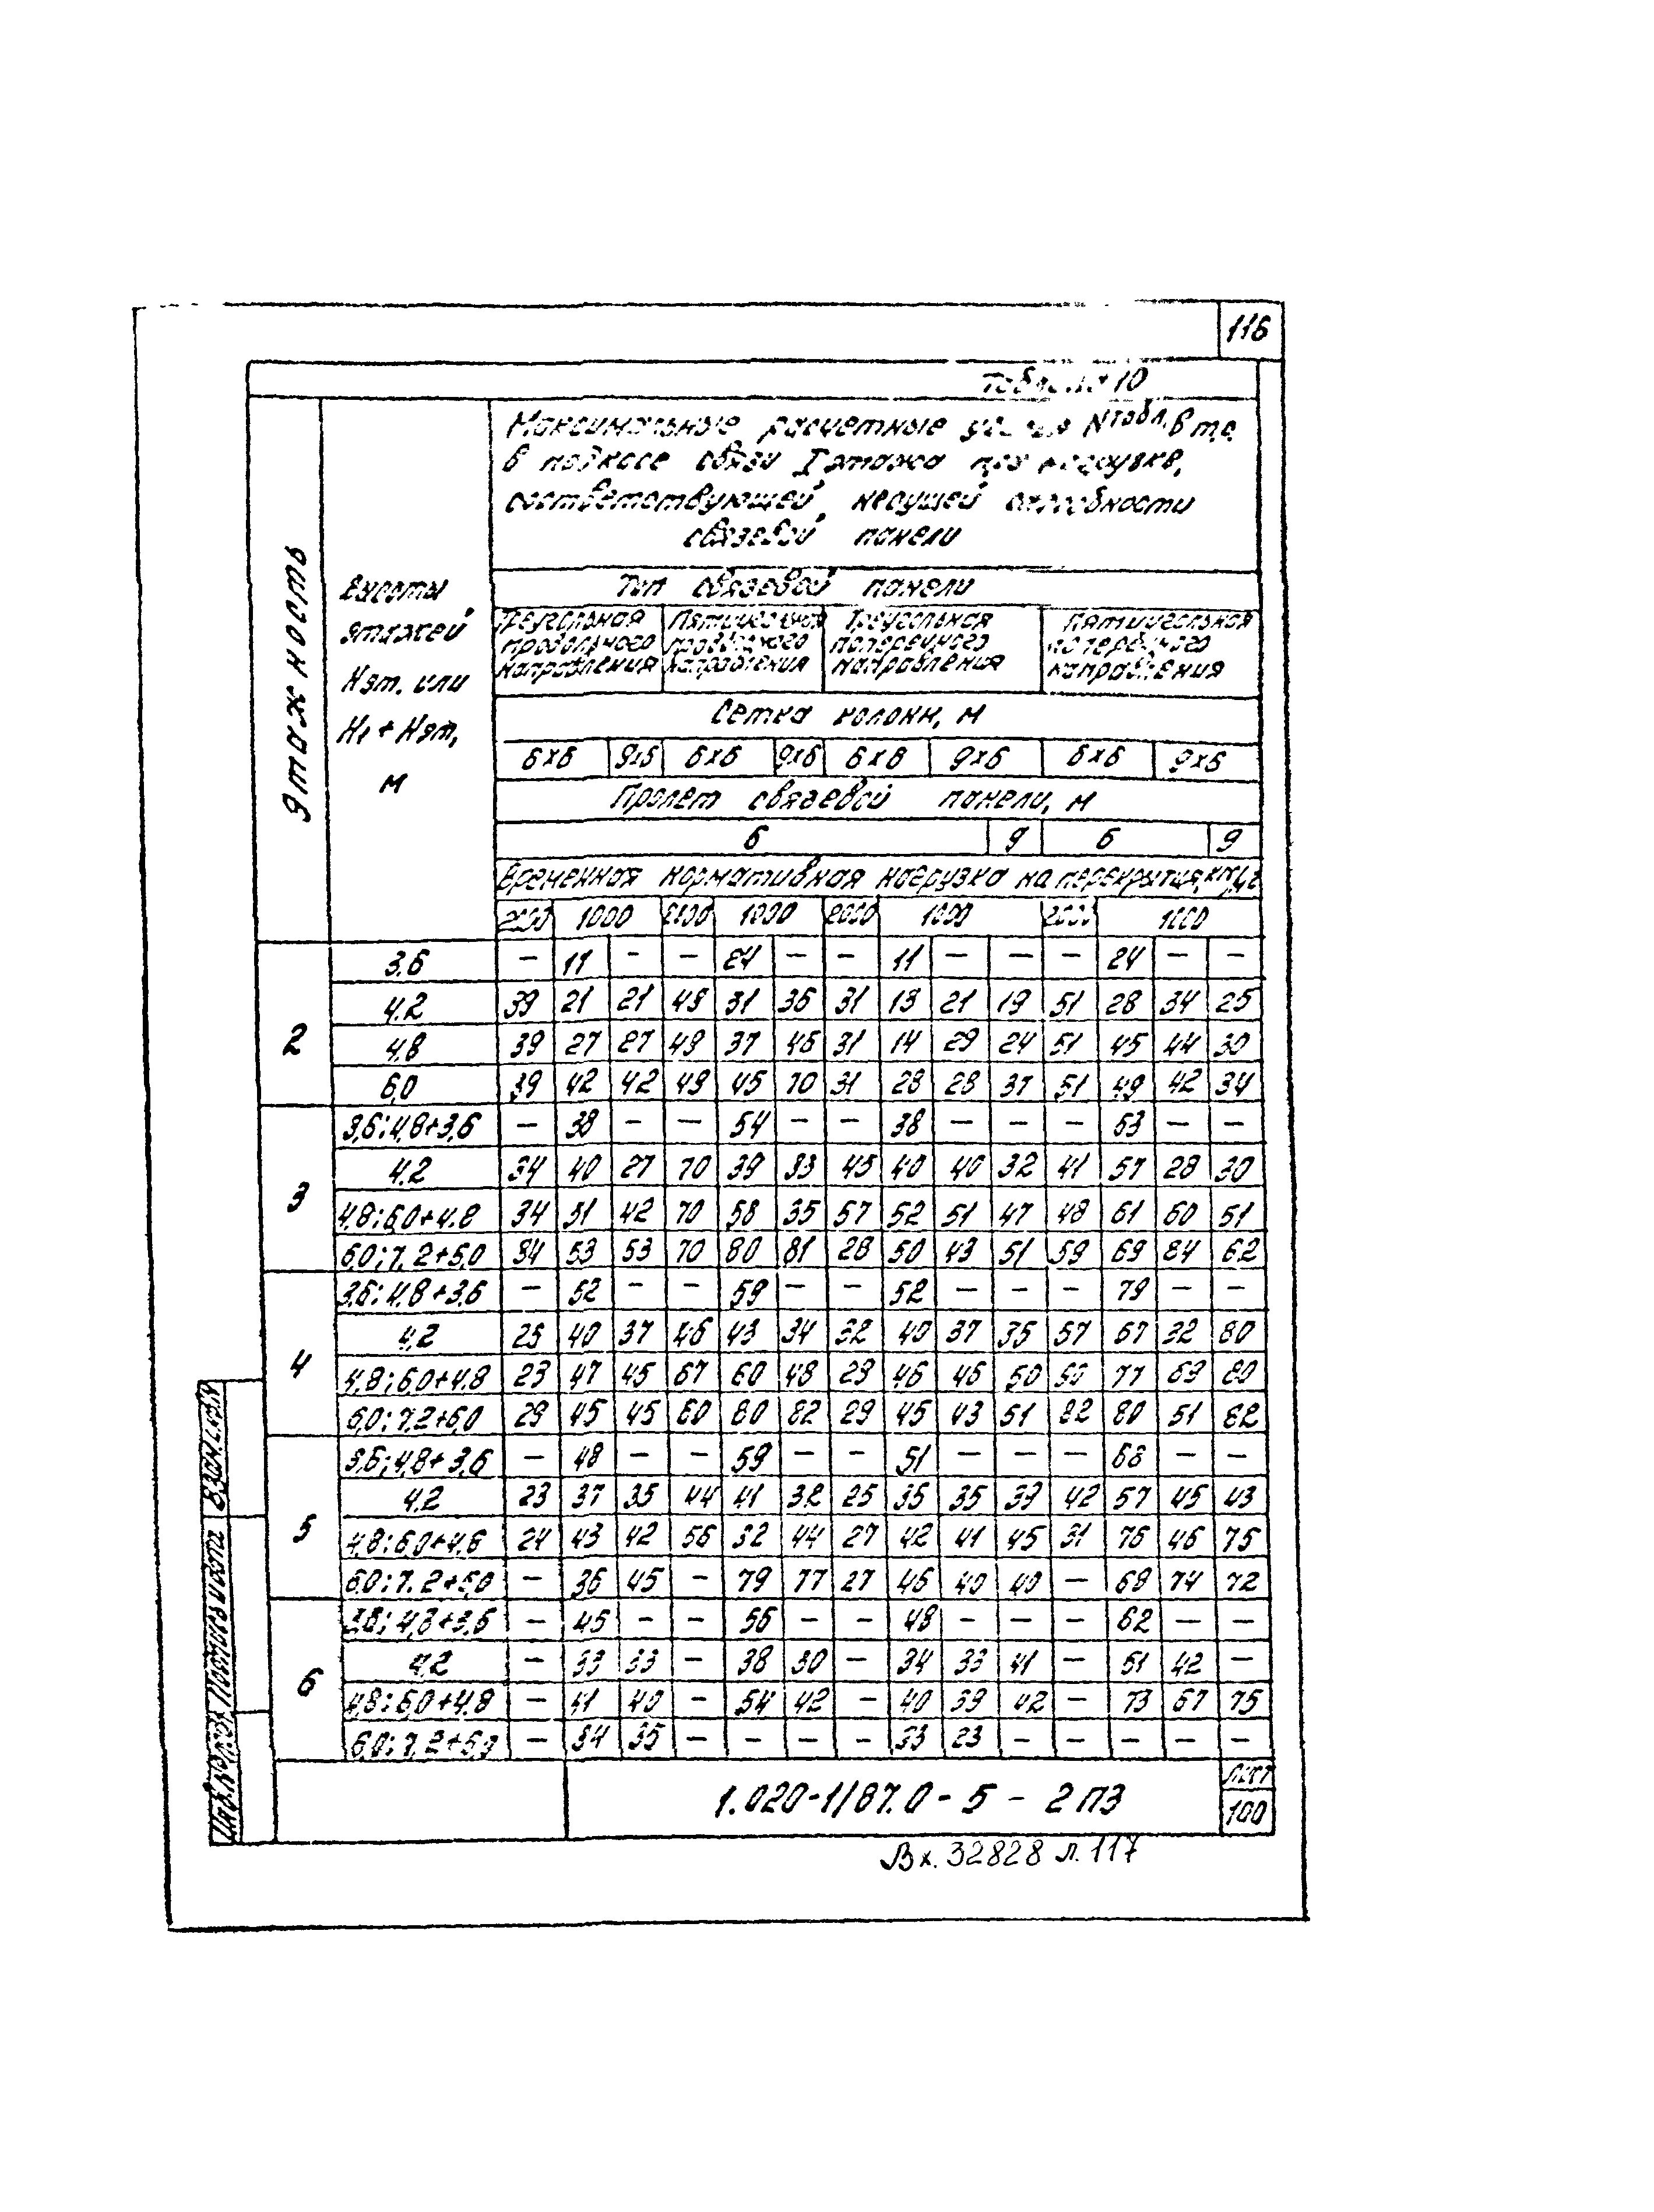 116
Таблица 10
Этажность
Высоты этажей Нэт. или Н1 + Нэт, м
Максимальные расчетные усилия Nтабл. в тс
в подкосе связи I этажа при нагрузке,
соответствующей несущей способности
связевой панели
Тип связевой панели
Треугольная продольного направления | Пятиугольная продольного направления | Треугольная поперечного направления | Пятиугольная поперечного направления
Сетка колонн, м
6х6 | 9х6 | 6х6 | 9х6 | 6х6 | 9х6 | 6х6 | 9х6
Пролет связевой панели, м
6 | 9 | 6 | 9
Временная нормативная нагрузка на перекрытия,
2000 | 1000 | 2000 | 1000 | 2000 | 1000 | 2000 | 1000
2
3,6 | – | 11 | – | – | 24 | – | – | 11 | – | – | – | 24 | – | –
4.2 | 39 | 21 | 21 | 49 | 31 | 36 | 31 | 13 | 21 | 19 | 51 | 28 | 34 | 25
4,8 | 39 | 27 | 27 | 49 | 37 | 46 | 31 | 14 | 29 | 24 | 51 | 45 | 44 | 30
6,0 | 39 | 42 | 42 | 49 | 45 | 70 | 31 | 28 | 28 | 37 | 51 | 49 | 42 | 34
3
3,6; 4,8+3,6 | – | 38 | – | – | 54 | – | – | 38 | – | – | – | 53 | – | –
4.2 | 34 | 40 | 27 | 70 | 39 | 33 | 45 | 40 | 40 | 32 | 41 | 57 | 28 | 30
4,8; 6,0+4.8 | 34 | 51 | 42 | 70 | 58 | 35 | 57 | 52 | 51 | 47 | 48 | 61 | 60 | 51
6,0; 7.2+6,0 | 34 | 53 | 53 | 70 | 80 | 81 | 28 | 50 | 43 | 51 | 59 | 69 | 84 | 62
4
3,6; 4,8+3,6 | – | 52 | – | – | 59 | – | – | 52 | – | – | – | 79 | – | –
4,2 | 25 | 40 | 37 | 46 | 43 | 34 | 32 | 40 | 37 | 35 | 57 | 67 | 32 | 60
4,8; 6,0+4,8 | 23 | 47 | 45 | 67 | 60 | 48 | 29 | 46 | 46 | 50 | 50 | 77 | 69 | 80
6,0; 7,2+6,0 | 29 | 45 | 45 | 60 | 80 | 82 | 29 | 45 | 43 | 51 | 82 | 80 | 51 | 62
5
3,6; 4,8+3,6 | – | 48 | – | – | 59 | – | – | 51 | – | – | – | 68 | – | –
4.2 | 23 | 37 | 35 | 44 | 41 | 32 | 25 | 35 | 35 | 39 | 42 | 57 | 45 | 43
4,8; 6,0+4,8 | 24 | 43 | 42 | 56 | 52 | 44 | 27 | 42 | 41 | 45 | 31 | 76 | 46 | 75
6,0; 7.2+6,0 | – | 36 | 45 | – | 79 | 77 | 27 | 46 | 40 | 49 | – | 69 | 74 | 72
6
3,6; 4,8+3,6 | – | 45 | – | – | 56 | – | – | 48 | – | – | – | 62 | – | –
4,2 | – | 33 | 33 | – | 38 | 30 | – | 34 | 33 | 41 | – | 51 | 42 | –
4,8; 6,0+4,8 | – | 41 | 40 | – | 54 | 42 | – | 40 | 39 | 42 | – | 73 | 67 | 75
6,0; 7,2+6,0 | – | 34 | 35 | – | – | – | – | 33 | 23 | – | – | – | – | –
1.020-1/87.0 - 5 - 2 ПЗ
Лист
100
Инв.№подл. Подпись и дата Взам.инв.№
Вх. 32828 л. 117